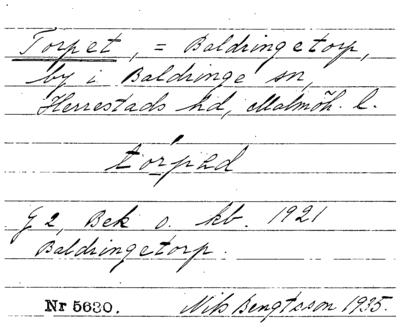 Torpet, = Baldringetorp,
by i Baldringe sn,
Herrestads hd, Malmöh. l.
tórpad
G 2, Bek o. kb. 1921
Baldringetorp.
Nr 5630. Nils Bengtsson 1935.